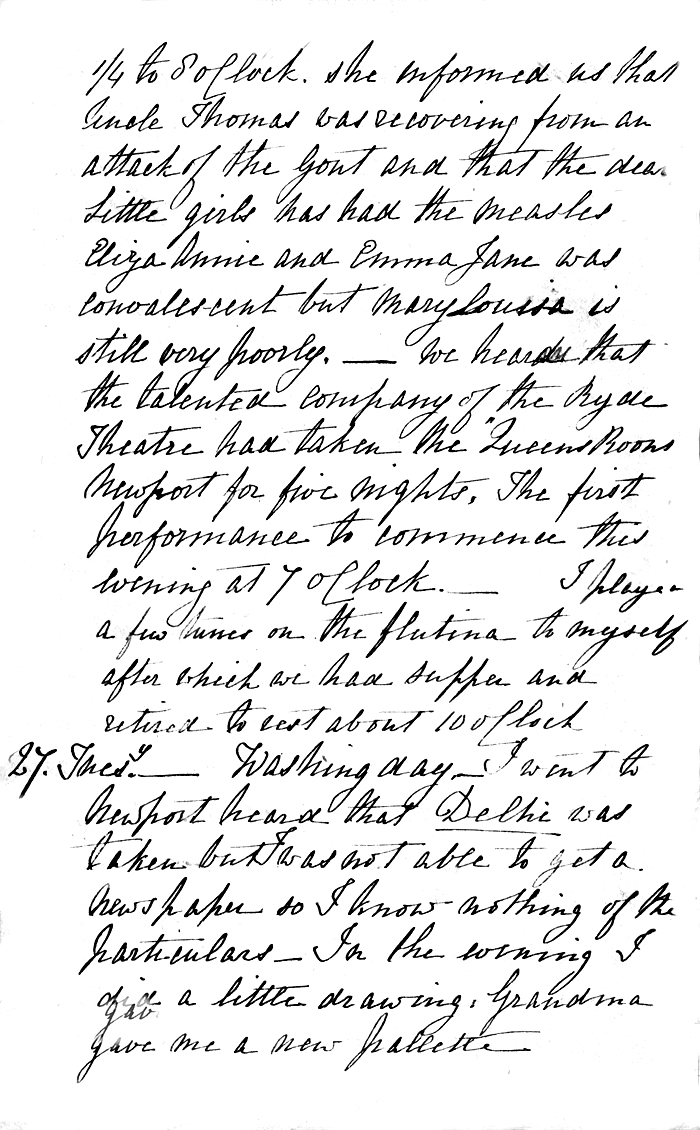 1/4 to 8 oClock. she informed us that
Uncle Thomas was recovering from an
attack of the Gout and that the dear
Little girls has had the measles
Eliza Annie and Emma Jane was
convalescent but Mary Louisa is
still very poorly. — We heard that
the talented company of the Ryde
Theatre had taken the "Queens Rooms
Newport for five nights. The first
performance to commence this
evening at 7 oClock. — I played
a few tunes on the flutina to myself
after which we had supper and
retired to rest about 10 oClock
27. Tuesy. — Washing day — I went to
Newport heard that Delhi was
taken but I was not able to get a
newspaper so I know nothing of the
particulars — In the evening I
did a little drawing. Grandma
gave me a new pallette